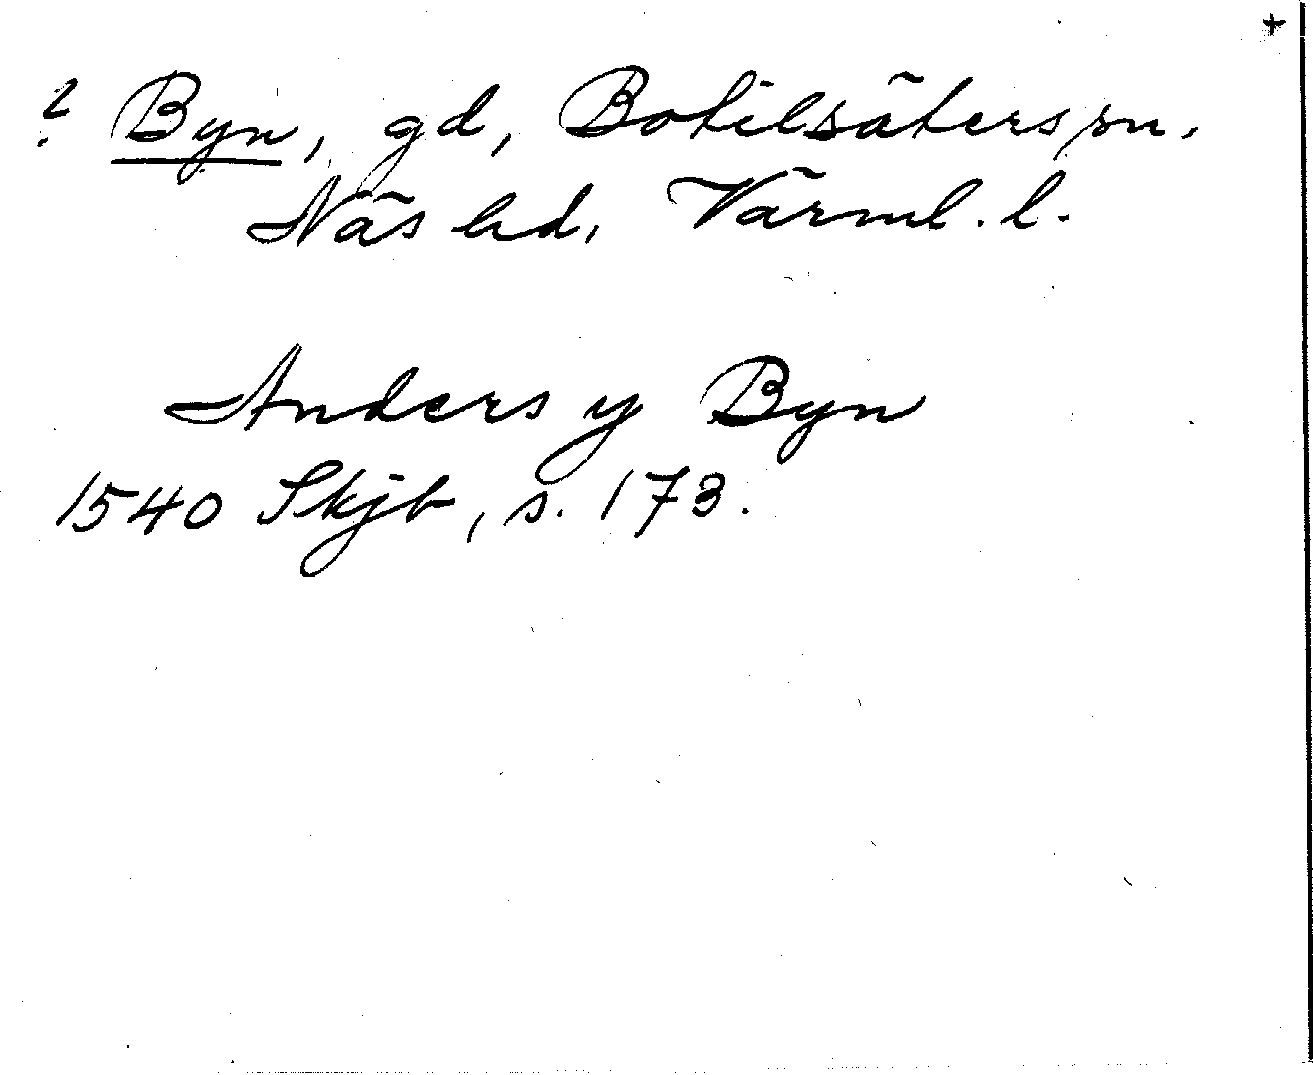 +
? Byn, gd, Botilsäters sn,
Näs hd, Värml. l.
Anders y Byn
1540 Skjb, s. 173.